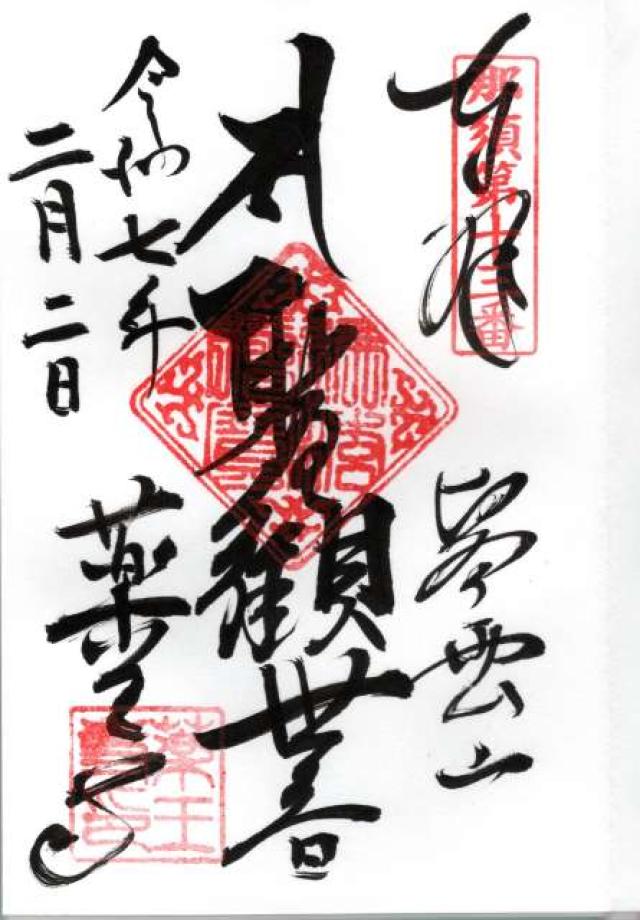 奉拝
那須第十三番
雲山
聖観世音
令和七年
二月二日
薬王寺
薬王